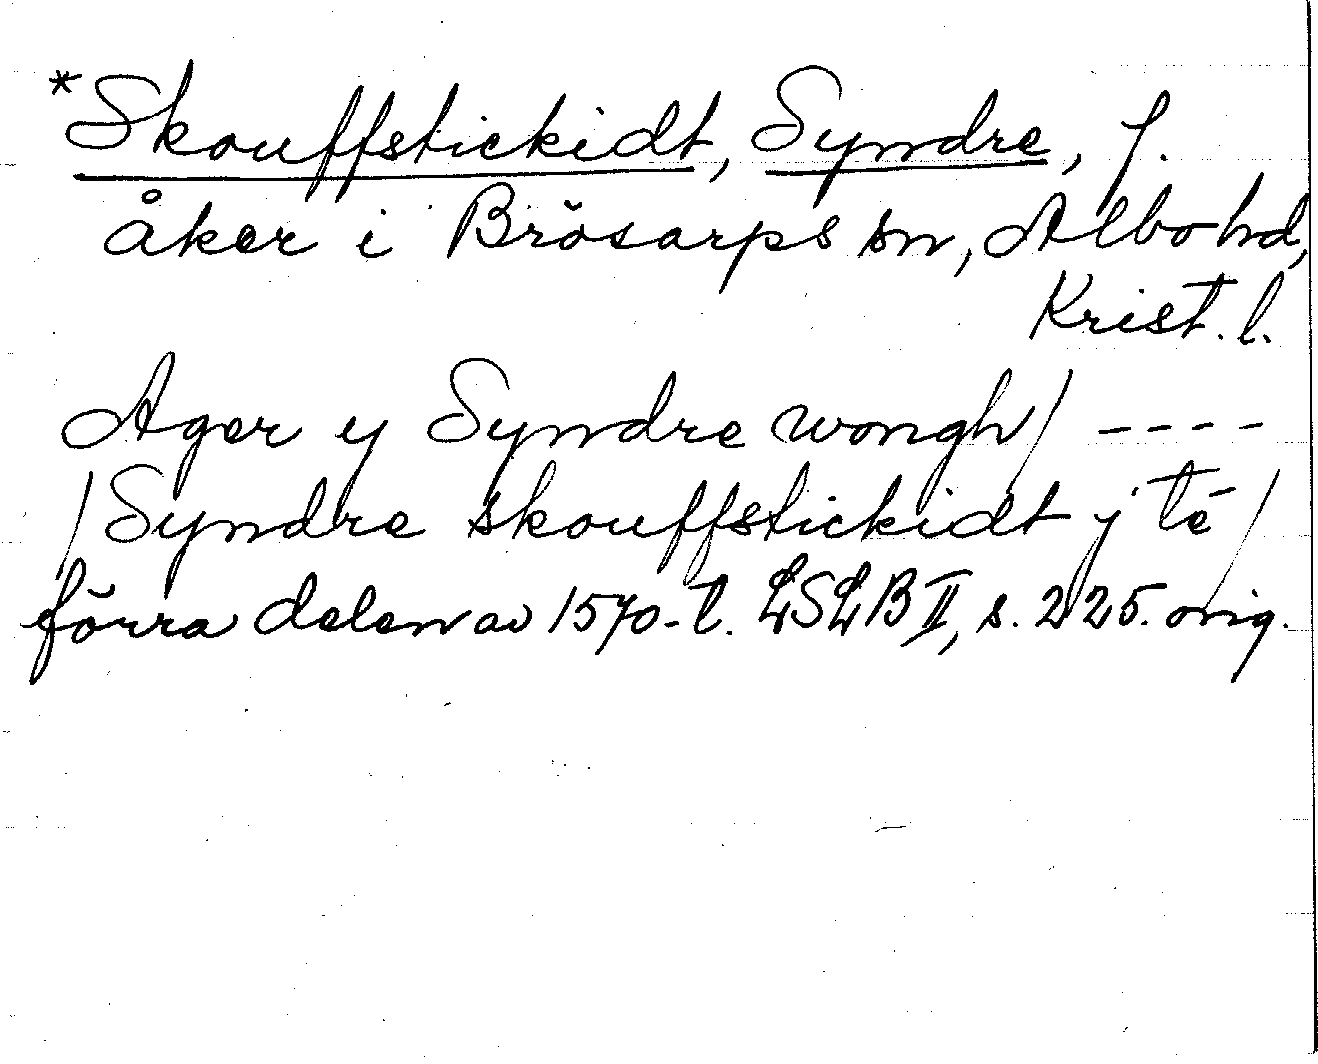 *Skouffstickidt, Syndre, f.
åker i Brösarps sn, Albo hd,
Krist. l.
Ager y Syndre wongh/ ----
/Syndre skouffstickidt y té/
förra delen av 1570-t. LSLB II, s. 225. orig.